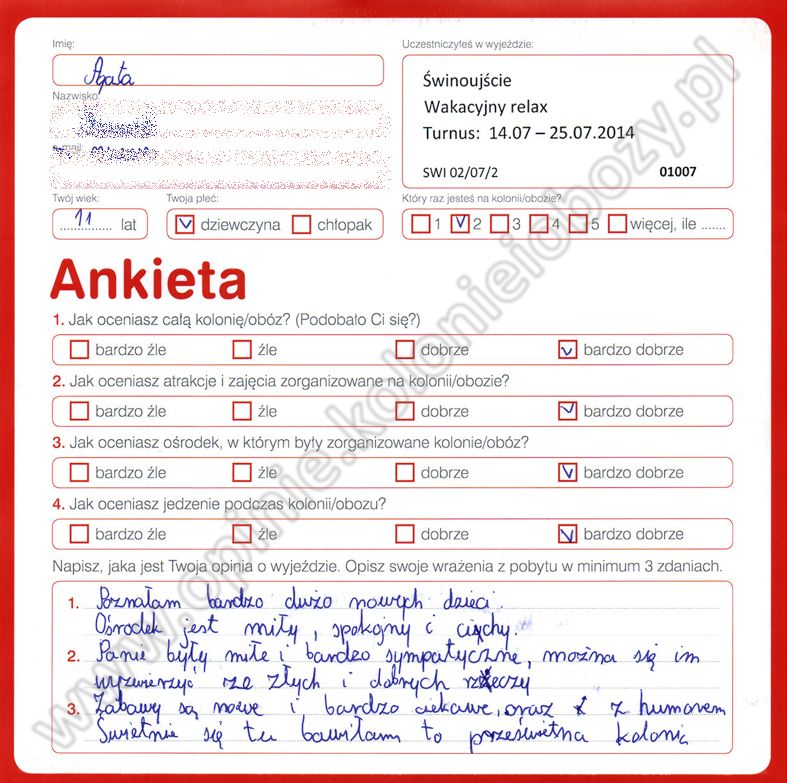 Imię:
Agata
Uczestniczyłeś w wyjeździe:
Świnoujście
Wakacyjny relax
Turnus: 14.07 – 25.07.2014
SWI 02/07/2 01007
Nazwisko
e-mail:
Twój wiek:
11 lat
Twoja płeć:
dziewczyna chłopak
Który raz jesteś na kolonii/obozie?
1 2 3 4 5 więcej, ile .......
Ankieta
1. Jak oceniasz całą kolonię/obóz? (Podobało Ci się?)
bardzo źle źle dobrze bardzo dobrze
2. Jak oceniasz atrakcje i zajęcia zorganizowane na kolonii/obozie?
bardzo źle źle dobrze bardzo dobrze
3. Jak oceniasz ośrodek, w którym były zorganizowane kolonie/obóz?
bardzo źle źle dobrze bardzo dobrze
4. Jak oceniasz jedzenie podczas kolonii/obozu?
bardzo źle źle dobrze bardzo dobrze
Napisz, jaka jest Twoja opinia o wyjeździe. Opisz swoje wrażenia z pobytu w minimum 3 zdaniach.
1. Poznałam bardzo dużo nowych dzieci.
Ośrodek jest miły, spokojny i cichy.
2. Panie były miłe i bardzo sympatyczne, można się im
wyzwierzyć ze złych i dobrych rzeczy
3. Zabawy są nowe i bardzo ciekawe, oraz z humorem
Świetnie się tu bawiłam to prześwietna kolonia
www.opinie.kolonieiobozy.pl